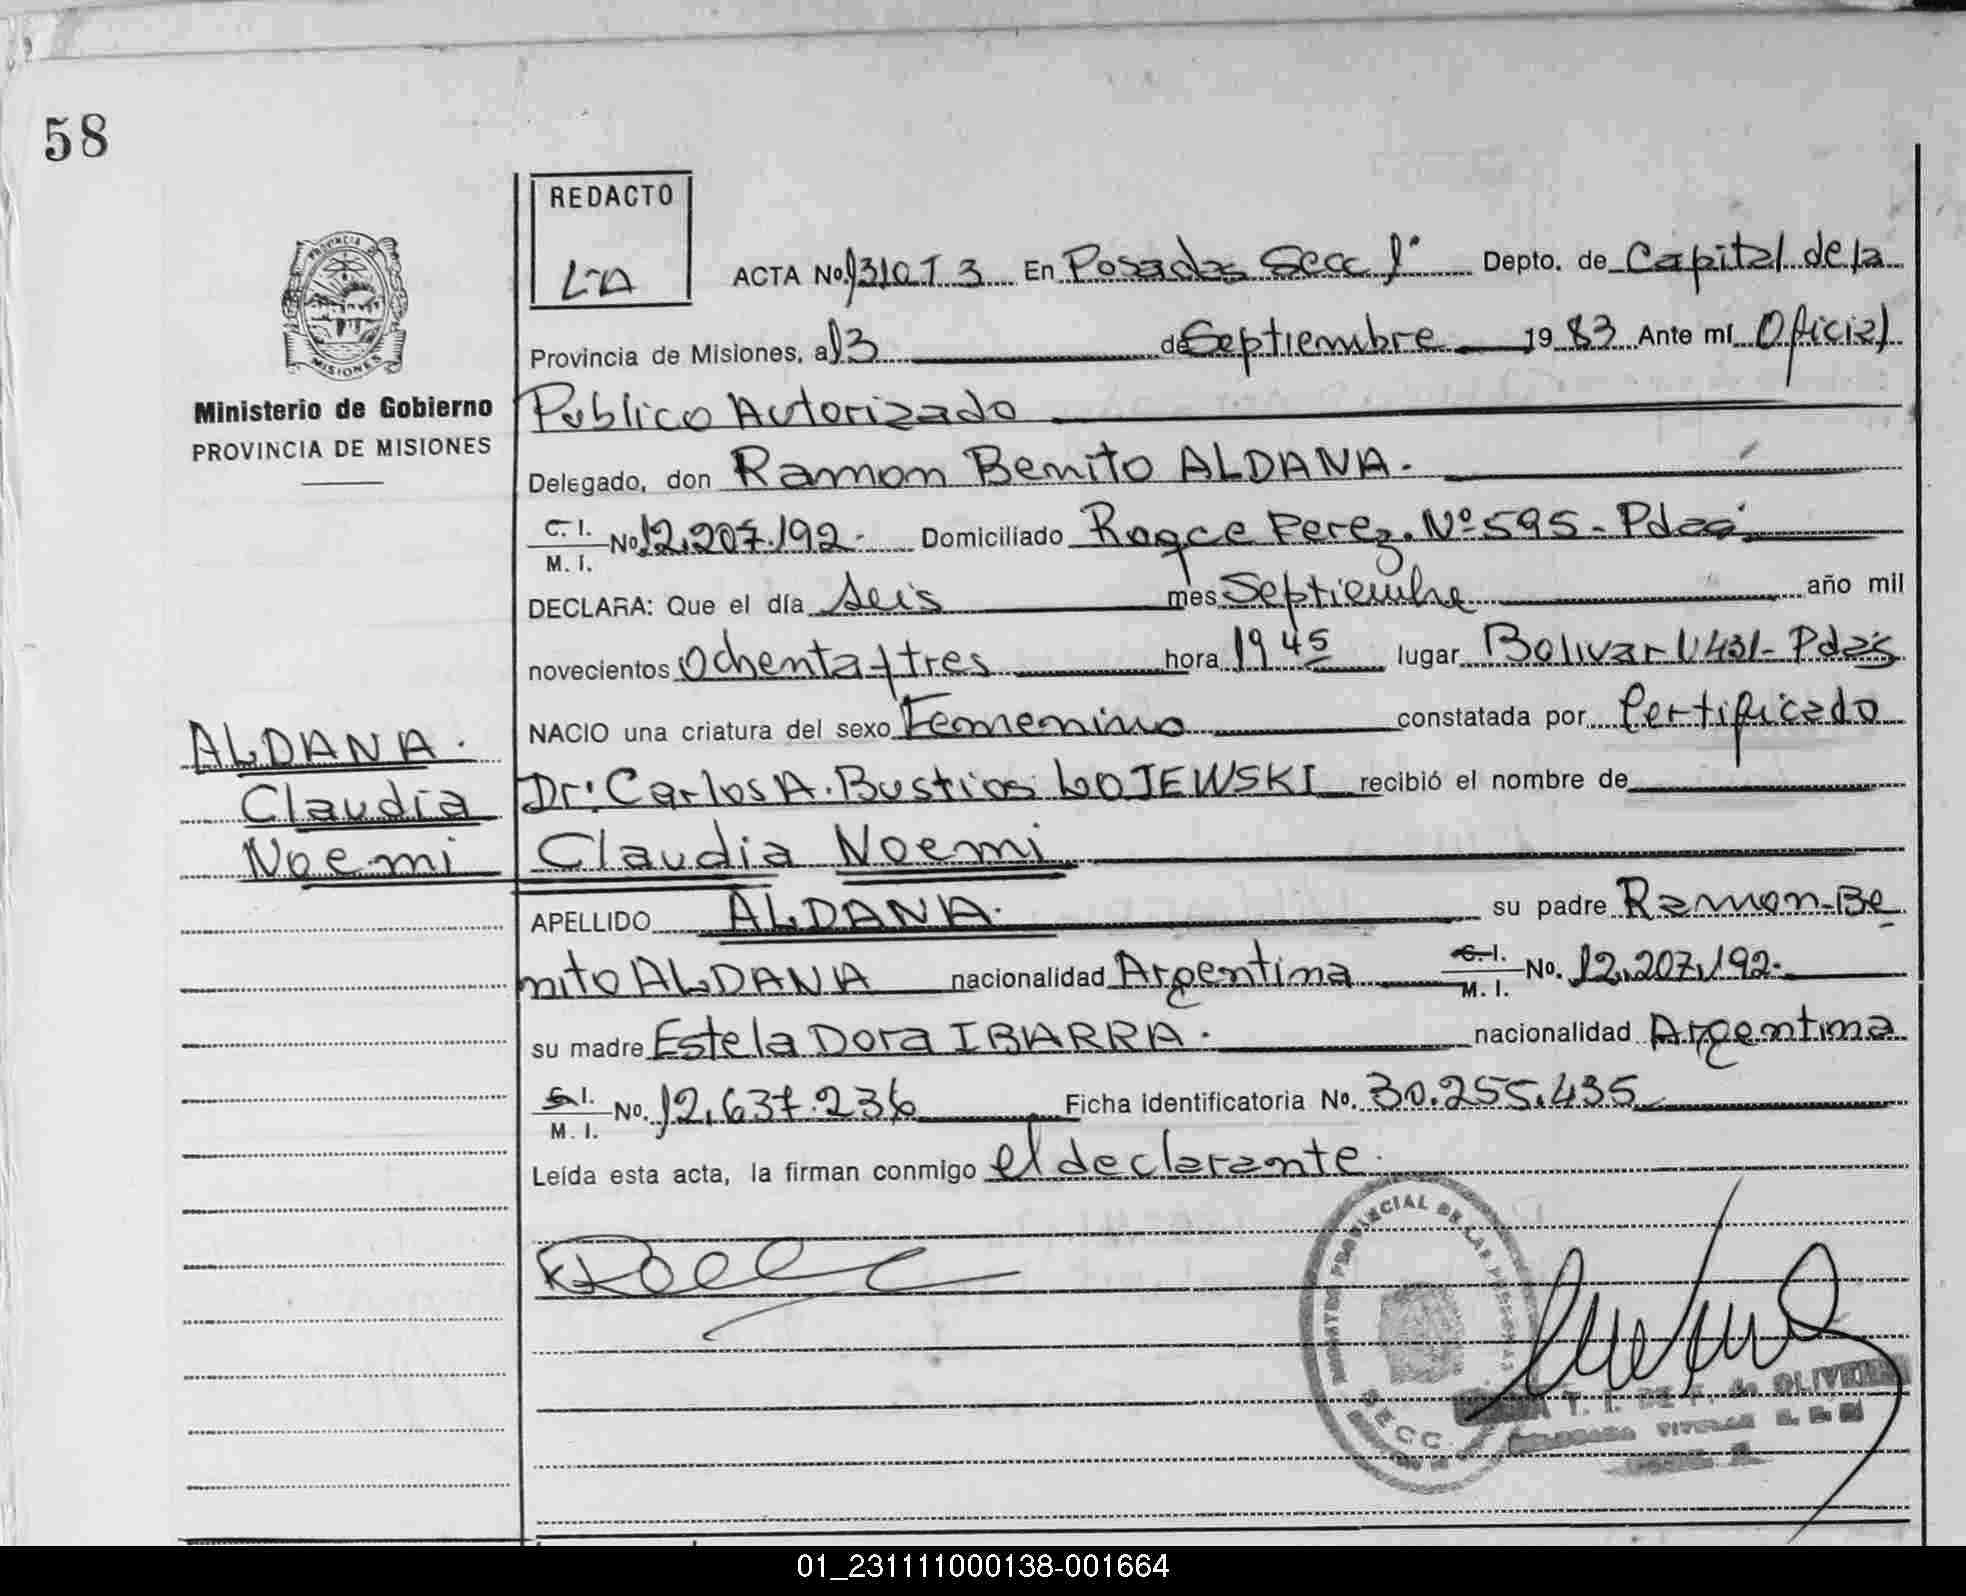 58
REDACTO
PROVINCIA
MISIONES
ACTA No. En Posadas Secc 1ª Depto. de Capital de la
Provincia de Misiones, a 13 de Septiembre 1983 Ante mí Oficial
Ministerio de Gobierno
Publico Autorizado
PROVINCIA DE MISIONES
Delegado, don Ramon Benito ALDANA.
C. I. M. I. No 12.207.192. Domiciliado Roque Perez. Nº 595 - Pdas
DECLARA: Que el día seis mes Septiembre año mil
novecientos Ochenta y tres hora 19 45 lugar Bolivar 1431 - Pdas
NACIO una criatura del sexo Femenino constatada por Certificado
ALDANA.
Claudia
Noemi
Dr: Carlos A. Bustios LOJEWSKI recibió el nombre de
Claudia Noemi
APELLIDO ALDANA. su padre Ramon Be
nito ALDANA nacionalidad Argentina C. I. M. I. No. 12.207.192.
su madre Estela Dora IBARRA. nacionalidad Argentina
C. I. M. I. No. 12.637.236 Ficha identificatoria No. 30.255.435
Leída esta acta, la firman conmigo el declarante.
PROVINCIAL DE LAS PERSONAS
SECC.
de OLIVEIRA
01_231111000138-001664